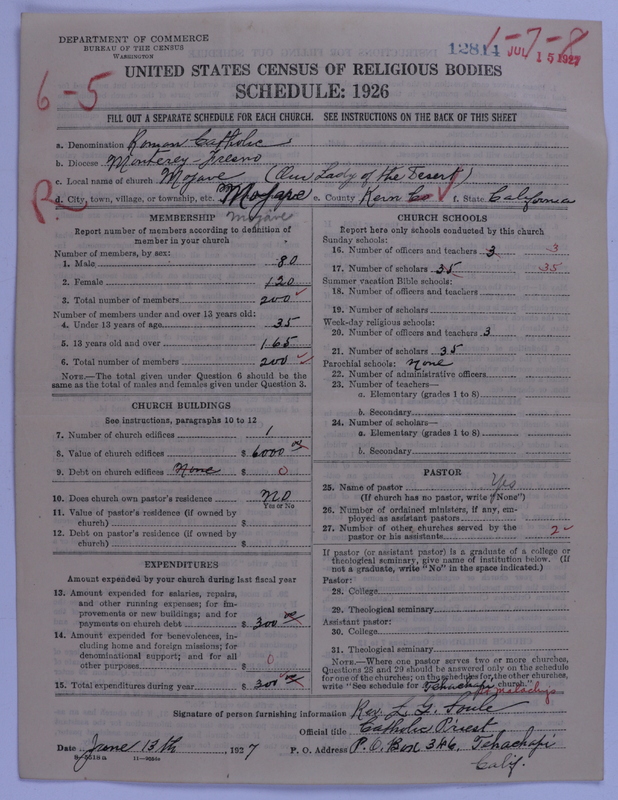 DEPARTMENT OF COMMERCE
BUREAU OF THE CENSUS
WASHINGTON
12814
1-7-8
JUL 15 1927
6-5
UNITED STATES CENSUS OF RELIGIOUS BODIES
SCHEDULE: 1926
FILL OUT A SEPARATE SCHEDULE FOR EACH CHURCH. SEE INSTRUCTIONS ON THE BACK OF THIS SHEET
a. Denomination Roman Catholic
b. Diocese Monterey-Fresno
c. Local name of church Mojave (Our Lady of the Desert)
R
d. City, town, village, or township, etc. Mojave e. County Kern Co f. State California
Mojave
MEMBERSHIP
Report number of members according to definition of
member in your church
Number of members, by sex:
1. Male 80
2. Female 120
3. Total number of members 200
Number of members under and over 13 years old:
4. Under 13 years of age 35
5. 13 years old and over 165
6. Total number of members 200
NOTE.—The total given under Question 6 should be the
same as the total of males and females given under Question 3.
CHURCH BUILDINGS
See instructions, paragraphs 10 to 12
7. Number of church edifices 1
8. Value of church edifices $ 6000 00
9. Debt on church edifices None $ 0
10. Does church own pastor's residence No
Yes or No
11. Value of pastor's residence (if owned by
church) $
12. Debt on pastor's residence (if owned by
church) $
EXPENDITURES
Amount expended by your church during last fiscal year
13. Amount expended for salaries, repairs,
and other running expenses; for im-
provements or new buildings; and for
payments on church debt $ 300 00
14. Amount expended for benevolences, in-
cluding home and foreign missions; for
denominational support; and for all
other purposes $ 0
15. Total expenditures during year $ 300 00
CHURCH SCHOOLS
Report here only schools conducted by this church
Sunday schools:
16. Number of officers and teachers 3 3
17. Number of scholars 35 35
Summer vacation Bible schools:
18. Number of officers and teachers
19. Number of scholars
Week-day religious schools:
20. Number of officers and teachers 3
21. Number of scholars 35
Parochial schools: None
22. Number of administrative officers
23. Number of teachers—
a. Elementary (grades 1 to 8)
b. Secondary
24. Number of scholars—
a. Elementary (grades 1 to 8)
b. Secondary
PASTOR
25. Name of pastor Yes
(If church has no pastor, write "None")
26. Number of ordained ministers, if any, em-
ployed as assistant pastors
27. Number of other churches served by the
pastor or his assistants 2
If pastor (or assistant pastor) is a graduate of a college or
theological seminary, give name of institution below. (If
not a graduate, write "No" in the space indicated.)
Pastor:
28. College
29. Theological seminary
Assistant pastor:
30. College
31. Theological seminary
NOTE.—Where one pastor serves two or more churches,
Questions 28 and 29 should be answered only on the schedule
for one of the churches; on the schedules for the other churches,
write "See schedule for Tehachapi church."
Signature of person furnishing information Rev. L. G. Soule
Official title Catholic Priest
Date June 13th, 1927 P. O. Address P.O. Box 346, Tehachapi
Calif.